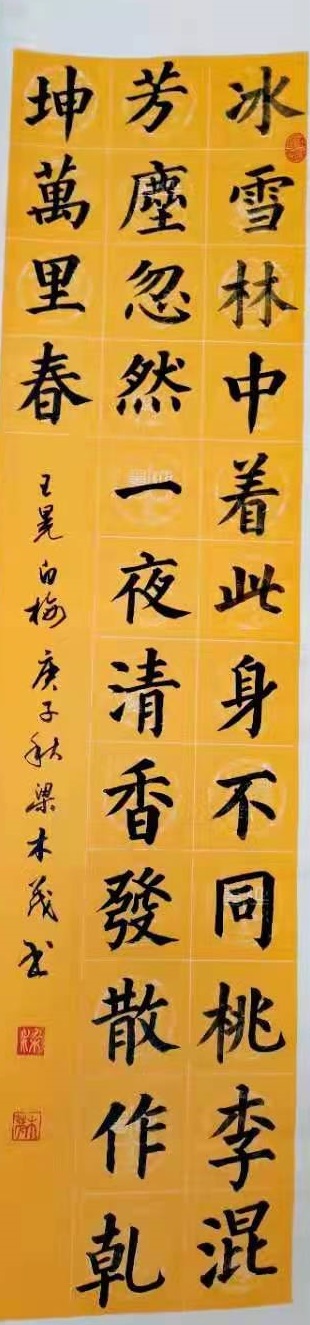 冰雪林中着此身不同桃李混
芳塵忽然一夜清香發散作乾
坤萬里春
王冕白梅庚子秋梁木茂书